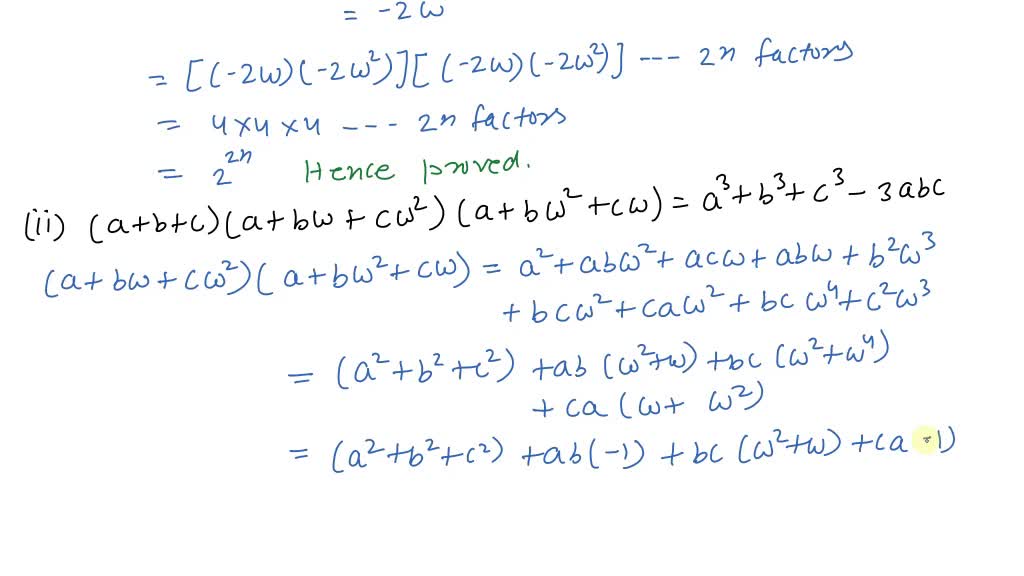 = -2ω
= [(-2ω)(-2ω²)][(-2ω)(-2ω²)] --- 2n factors
= 4×4×4 --- 2n factors
= 2²ⁿ Hence proved.
(ii) (a+b+c)(a+bω+cω²)(a+bω²+cω) = a³+b³+c³-3abc
(a+bω+cω²)(a+bω²+cω) = a²+abω²+acω+abω+b²ω³
+bcω²+caω²+bcω⁴+c²ω³
= (a²+b²+c²)+ab(ω²+ω)+bc(ω²+ω⁴)
+ca(ω+ω²)
= (a²+b²+c²)+ab(-1)+bc(ω²+ω)+(a-1)